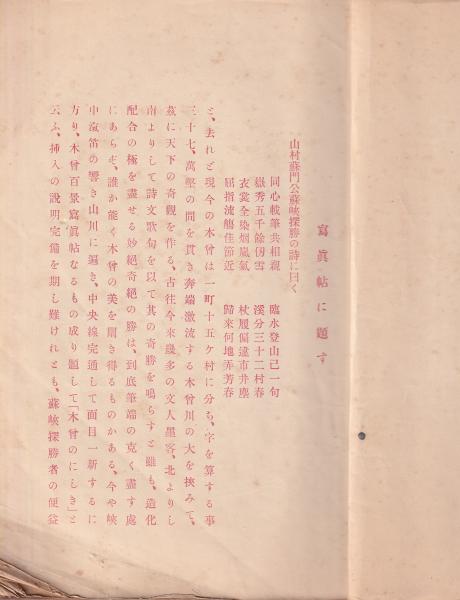 寫眞帖に題す
山村蘇門公蘇峽探勝の詩に曰く
同心載筆共相親　臨水登山己一旬
嶽秀五千餘仞雪　溪分三十二村春
衣裳全染烟嵐氣　杖履偏遠市井塵
屈指流觴佳節近　歸來何地弄芳春
と、去れど現今の木曾は一町十五ケ村に分ち、字を算する事
三十七、萬壑の間を貫き奔端激流する木曾川の大を挾みて、
玆に天下の奇觀を作る、古往今來幾多の文人墨客、北よりし
南よりして詩文歌句を以て其の奇勝を鳴らすと雖も、造化
配合の極を盡せる妙絕奇絕の勝は、到底筆端の克く盡す處
にあらず、誰か能く木曾の美を聞き得るものかある、今や峽
中滊笛の響き山川に遍き、中央線完通して面目一新するに
方り、木曾百景寫眞帖なるもの成り題して「木曾のにしき」と
云ふ、挿入の說明完備を期し難けれども、蘇峽探勝者の便益